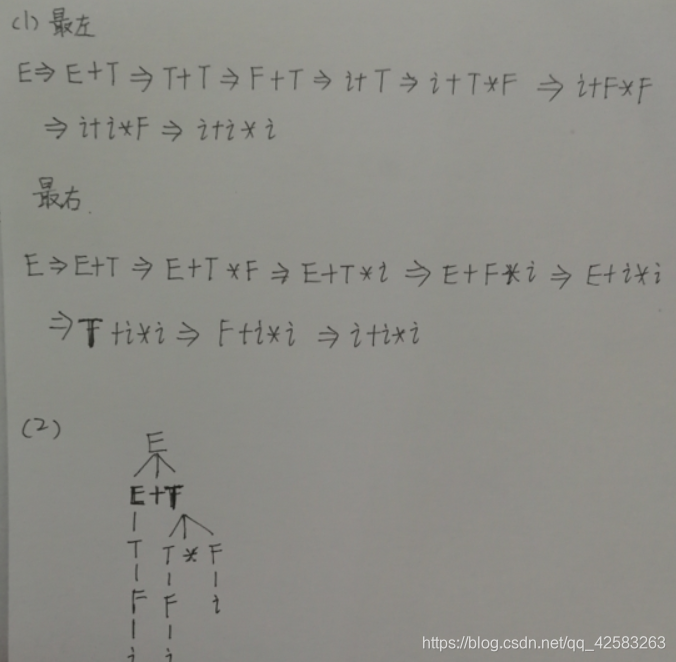 (1) 最左
E⇒E+T⇒T+T⇒F+T⇒i+T⇒i+T*F⇒i+F*F
⇒i+i*F⇒i+i*i
最右.
E⇒E+T⇒E+T*F⇒E+T*i⇒E+F*i⇒E+i*i
⇒T+i*i⇒F+i*i⇒i+i*i
(2)
E
E+T
T T * F
F F i
i i
https://blog.csdn.net/qq_42583263